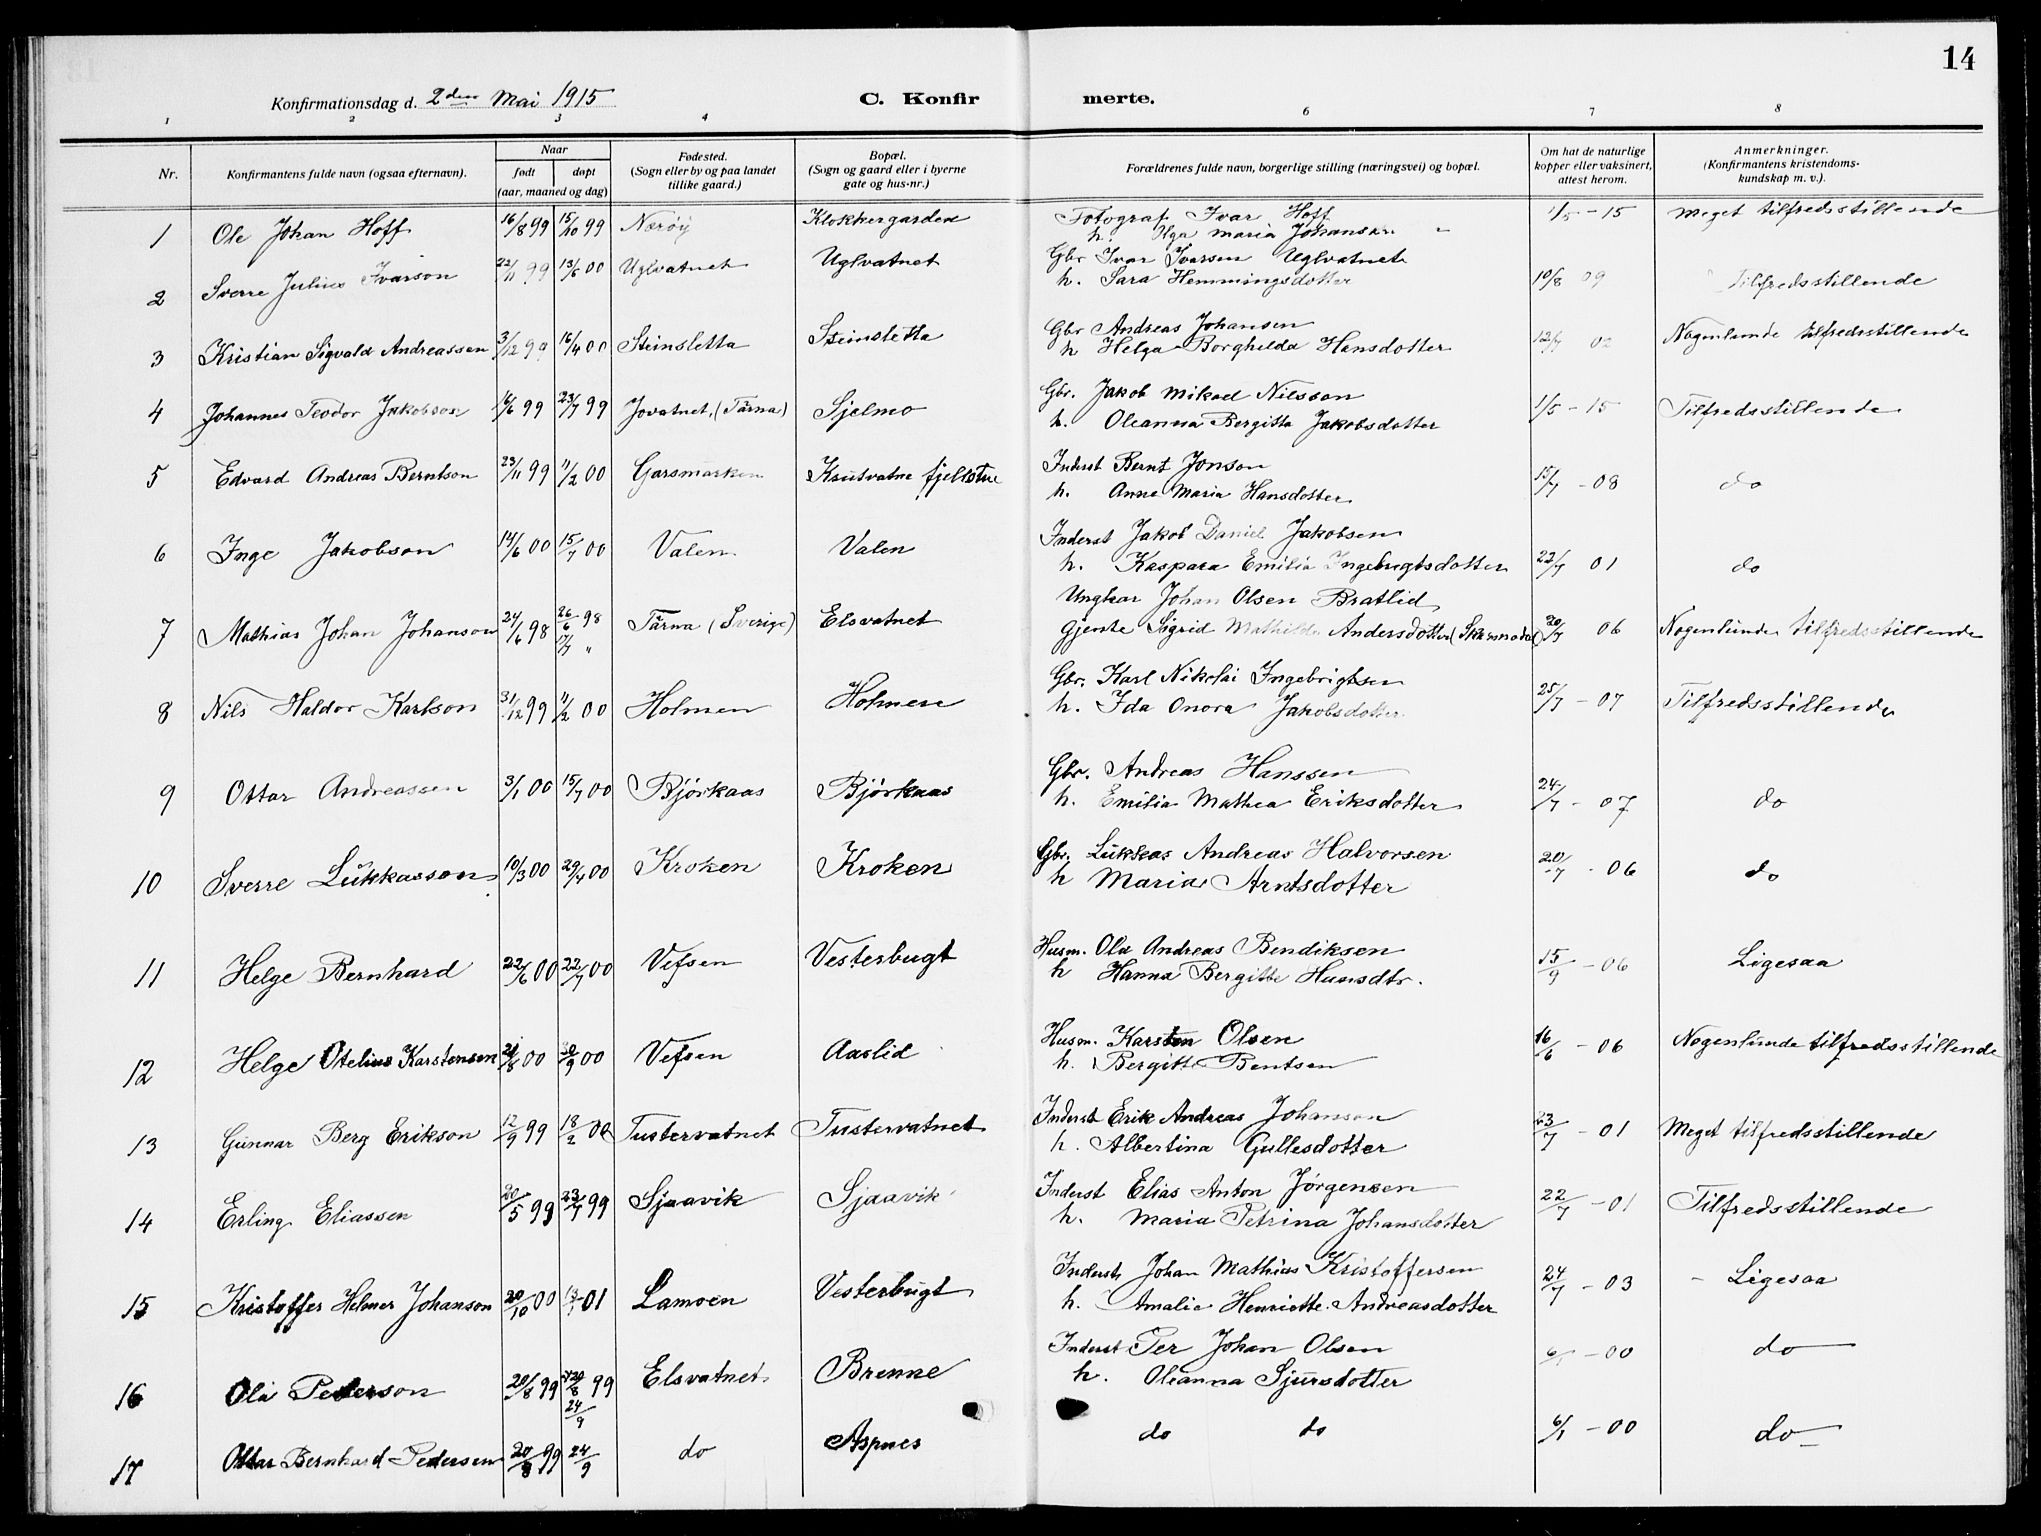 14
Konfirmationsdag d. 2den Mai 1915 C. Konfir merte.
1 2 3 4 6 7 8
Nr. Konfirmantens fulde navn (ogsaa efternavn). Naar født døpt (aar, maaned og dag) Fødested. (Sogn eller by og paa landet tillike gaard.) Bopæl. (Sogn og gaard eller i byerne gate og hus-nr.) Forældrenes fulde navn, borgerlige stilling (næringsvei) og bopæl. Om hat de naturlige kopper eller vaksinert, attest herom. Anmerkninger. (Konfirmantens kristendoms-kundskap m. v.).
1 Ole Johan Hoff 16/8 99 15/10 99 Nærøy Klokkergarden Fotograf Ivar Hoff 1/5 - 15 Meget tilfredsstillende
h. Olga Maria Johansen
2 Sverre Julius Ivarson 22/11 99 13/6 00 Uglvatnet Uglvatnet Gbr Ivar Ivarsen Uglvatnet
h. Sara Hemmingsdotter 10/8 09 Tilfredsstillende
3 Kristian Sigvald Andreassen 3/12 99 16/4 00 Steinsletta Steinsletta Gbr Andreas Johansen
h Helga Borghilda Hansdotter 12/7 02 Nogenlunde tilfredsstillende
4 Johannes Teodor Jakobson 16/6 99 23/7 99 Jovatnet, (Tärna) Sjelmo Gbr. Jakob Mikael Nilsson
h. Oleanna Bergitta Jakobsdotter 1/5 - 15 Tilfredsstillende
5 Edvard Andreas Berntson 23/11 99 11/2 00 Garsmarken Knutvatne fjellstue Inderst Bernt Jonson
h. Anne Maria Hansdotter 15/7 - 08 do
6 Inge Jakobson 14/6 00 15/7 00 Valen Valen Inderst Jakob Daniel Jakobsen
h. Kaspara Emilia Ingebrigtsdotter 22/7 01 do
7 Mathias Johan Johanson 24/6 98 26/6 98 Tärna (Sverige) Elsvatnet Ungkar Johan Olsen Bratlid
17/7 " Gjente Sigrid Mathilda Andersdotter 20/7 06 Nogenlunde tilfredsstillende
8 Nils Haldor Karlson 31/12 99 11/2 00 Holmen Holmen Gbr. Karl Nikolai Ingebrigtsen
h. Ida Onora Jakobsdotter 25/7 - 07 Tilfredsstillende
9 Ottar Andreassen 3/1 00 15/7 00 Bjørkaas Bjørkaas Gbr. Andreas Hanssen
h. Emilia Mathea Eriksdotter 24/7 - 07 do
10 Sverre Lukkasson 10/3 00 29/4 00 Kroken Kroken Gbr. Lukkas Andreas Halvorsen
h Maria Arntsdotter 20/7 - 06 do
11 Helge Bernhard 22/6 00 22/7 00 Vefsen Vesterbugt Husm. Ola Andreas Bendiksen
h Hanna Bergitte Hansdtr. 15/9 - 06 Ligesaa
12 Helge Otelius Karstensen 21/8 00 30/9 00 Vefsen Aaslid Husm. Karsten Olsen
h. Bergitte Bentsen 16/6 - 06 Nogenlunde tilfredsstillende
13 Gunnar Berg Erikson 12/9 99 18/2 00 Tustervatnet Tustervatnet Inderst Erik Andreas Johanson
h. Albertina Gullesdotter 23/7 - 01 Meget tilfredsstillende
14 Erling Eliassen 20/5 99 23/7 99 Sjaavik Sjaavik Inderst Elias Anton Jørgensen
h. Maria Petrina Johansdotter 22/7 - 01 Tilfredsstillende
15 Kristoffer Helmer Johanson 20/10 00 13/1 01 Lamoen Vesterbugt Inderst Johan Mathias Kristoffersen
h. Amalie Henriette Andreasdotter 24/7 - 03 - Ligesaa
16 Ola Pederson 20/8 99 20/8 99 Elsvatnet Brenne Inderst Per Johan Olsen
24/9 h. Oleanna Sjursdotter 6/1 - 00 do
17 Ottar Bernhard Pedersen 20/8 99 24/9 do Aspnes do do 6/1 - 00 do